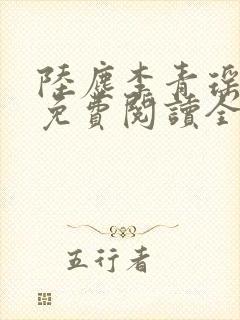 陸塵李青瑤
免費閱讀全
五行者